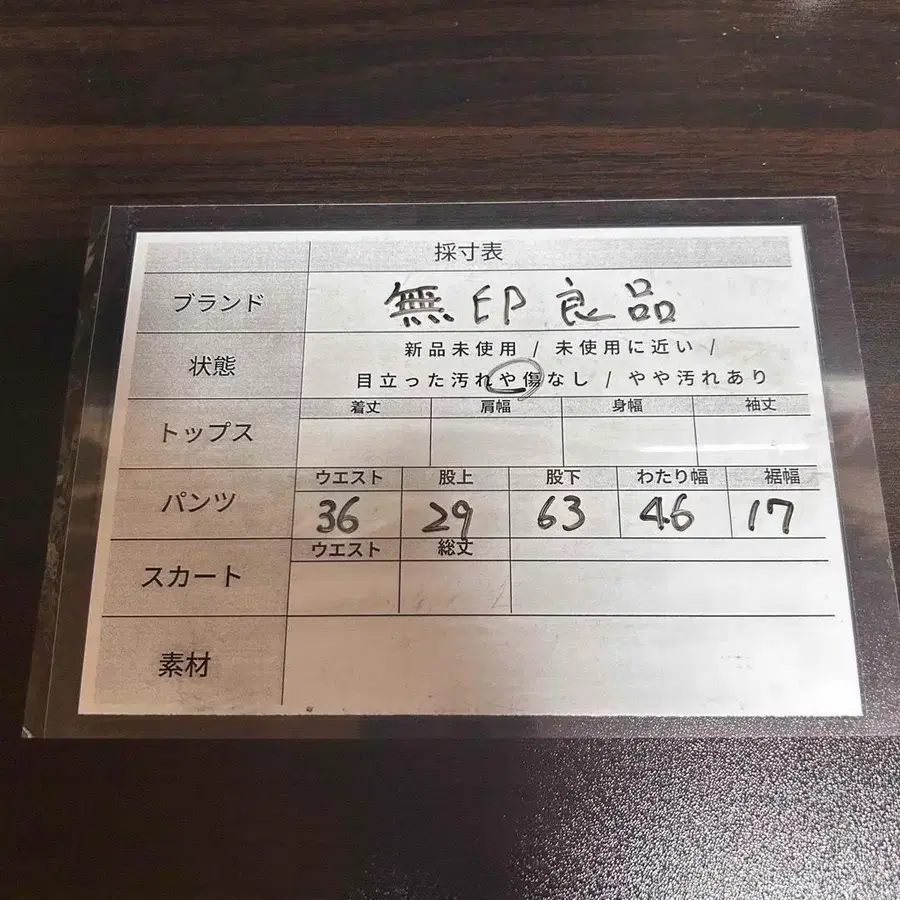 採寸表
ブランド 無印良品
状態 新品未使用 / 未使用に近い /
目立った汚れや傷なし / やや汚れあり
トップス 着丈 肩幅 身幅 袖丈
パンツ ウエスト 股上 股下 わたり幅 裾幅
36 29 63 46 17
スカート ウエスト 総丈
素材